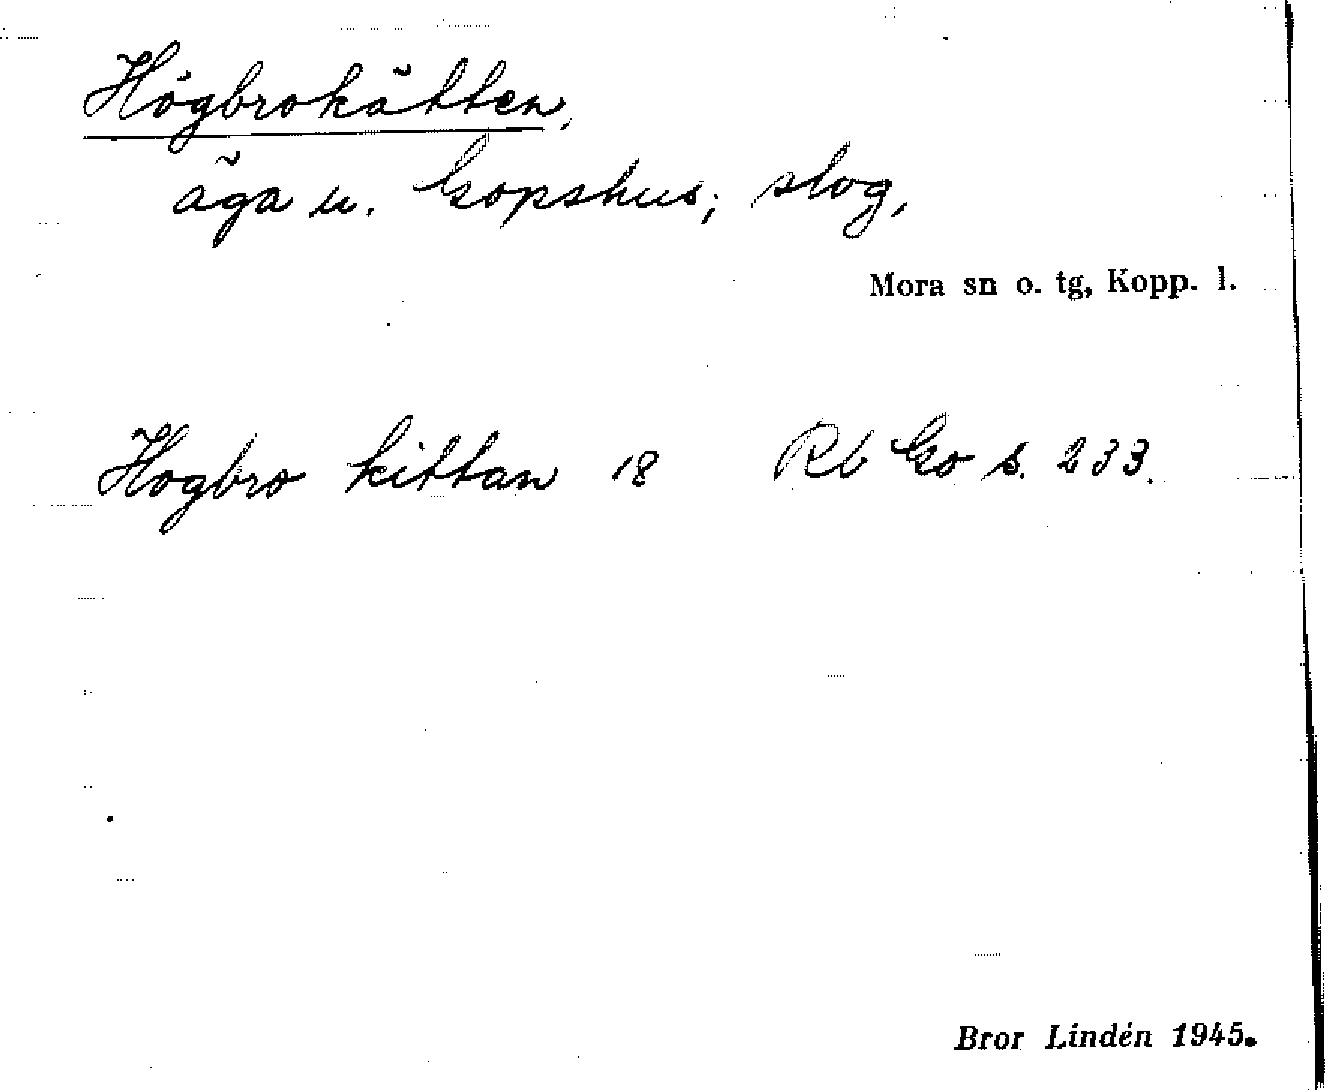 Högbrokätten,
äga u. Gopshus; slog,
Mora sn o. tg, Kopp. l.
Hogbro kittan 18 Rb Go s. 233.
Bror Lindén 1945.